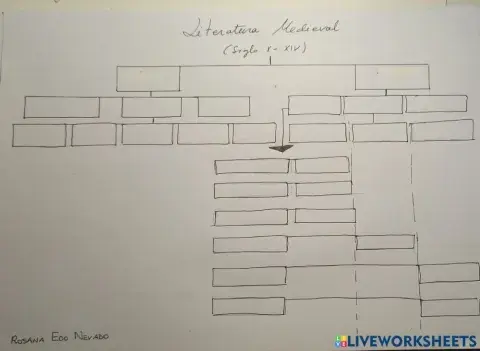 Literatura Medieval
(Siglo X - XIV)
ROSANA EDO NEVADO
LIVEWORKSHEETS